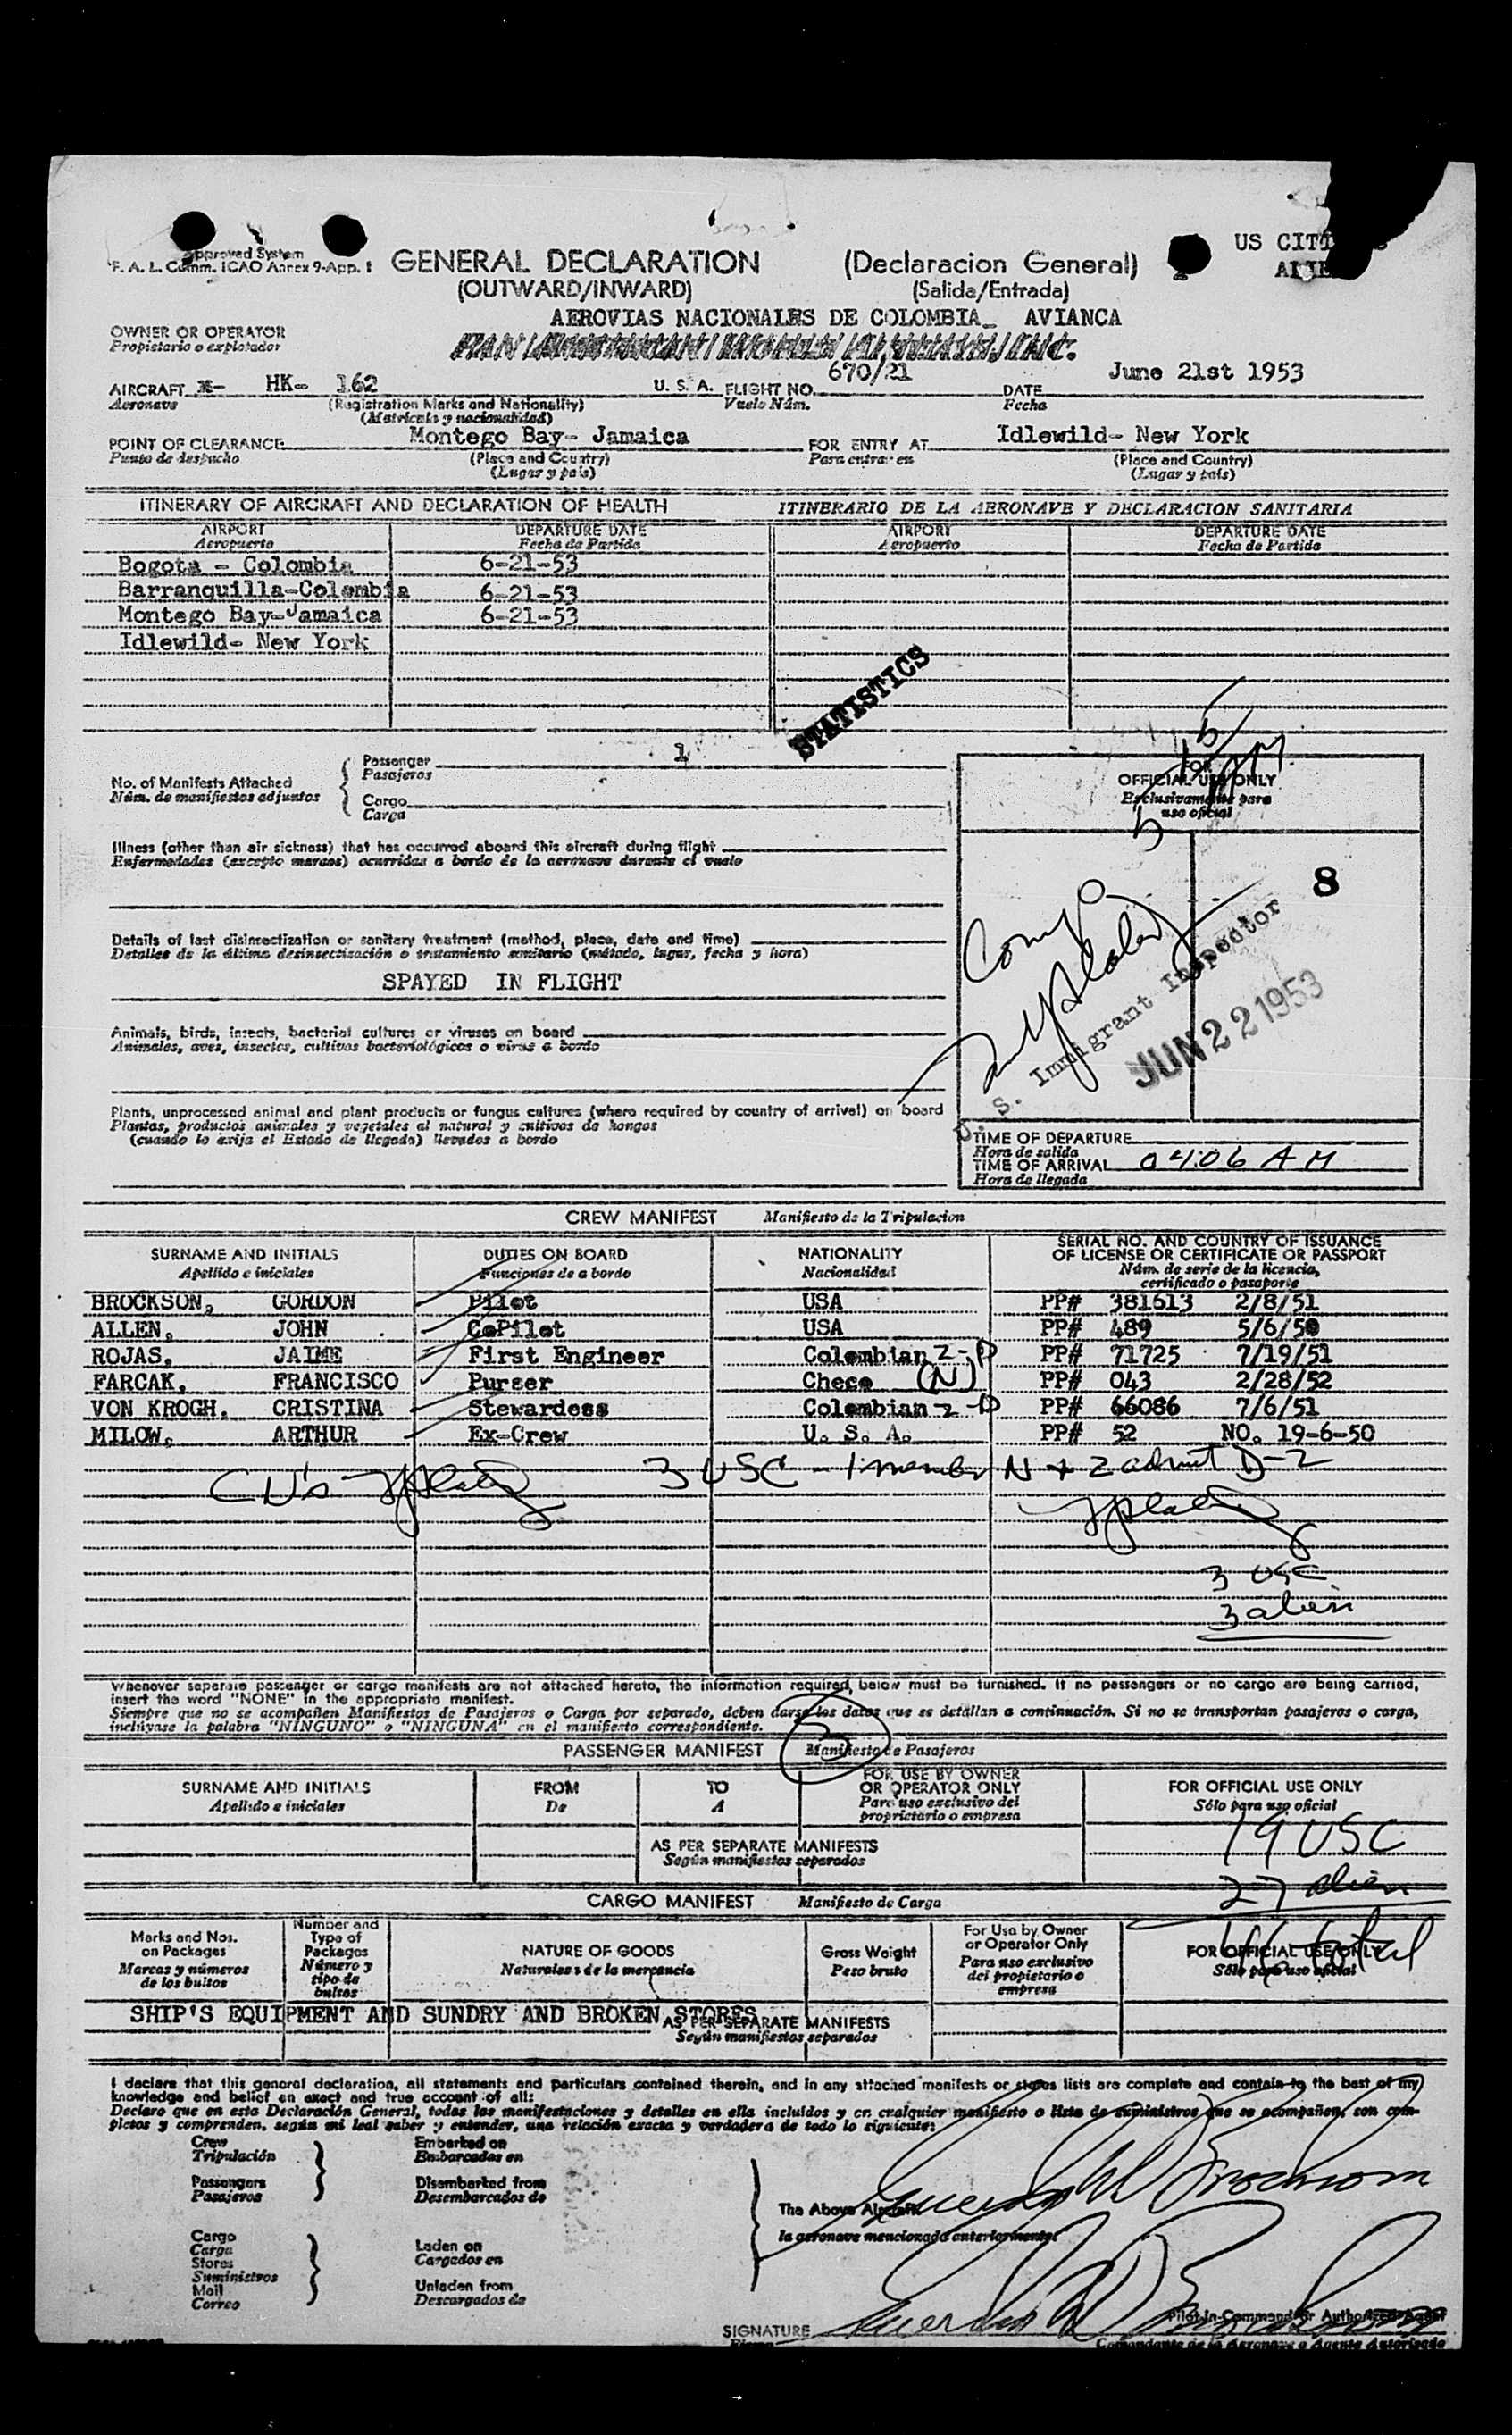 Approved System
F. A. L. Comm. ICAO Annex 9-App. 1
GENERAL DECLARATION (Declaracion General)
(OUTWARD/INWARD) (Salida/Entrada)
US CITI
AEROVIAS NACIONALES DE COLOMBIA_ AVIANCA
OWNER OR OPERATOR
Propietario o explotador
AIRCRAFT HK- 162 U. S. A. FLIGHT NO. 670/21 DATE June 21st 1953
Aeronave (Registration Marks and Nationality) Vuelo Núm. Fecha
(Matrícula y nacionalidad)
POINT OF CLEARANCE Montego Bay- Jamaica FOR ENTRY AT Idlewild- New York
Punto de despacho (Place and Country) Para entrar en (Place and Country)
(Lugar y país) (Lugar y país)
ITINERARY OF AIRCRAFT AND DECLARATION OF HEALTH ITINERARIO DE LA AERONAVE Y DECLARACION SANITARIA
AIRPORT DEPARTURE DATE AIRPORT DEPARTURE DATE
Aeropuerto Fecha de Partida Aeropuerto Fecha de Partida
Bogota - Colombia 6-21-53
Barranquilla-Colombia 6-21-53
Montego Bay-Jamaica 6-21-53
Idlewild- New York
STATISTICS
No. of Manifests Attached Passenger 1
Núm. de manifiestos adjuntos Pasajeros
Cargo
Carga
FOR
OFFICIAL USE ONLY
Exclusivamente para
uso oficial
Illness (other than air sickness) that has occurred aboard this aircraft during flight
Enfermedades (excepto mareos) ocurridas a bordo de la aeronave durante el vuelo
8
Details of last disinsectization or sanitary treatment (method, place, date and time)
Detalles de la última desinsectización o tratamiento sanitario (método, lugar, fecha y hora)
SPAYED IN FLIGHT
U. S. Immigrant Inspector
JUN 22 1953
Animals, birds, insects, bacterial cultures or viruses on board
Animales, aves, insectos, cultivos bacteriológicos o virus a bordo
Plants, unprocessed animal and plant products or fungus cultures (where required by country of arrival) on board
Plantas, productos animales y vegetales al natural y cultivos de hongos
(cuando lo exija el Estado de llegada) llevados a bordo
TIME OF DEPARTURE
Hora de salida
TIME OF ARRIVAL 0406 AM
Hora de llegada
CREW MANIFEST Manifiesto de la Tripulacion
SURNAME AND INITIALS DUTIES ON BOARD NATIONALITY SERIAL NO. AND COUNTRY OF ISSUANCE
OF LICENSE OR CERTIFICATE OR PASSPORT
Apellido e iniciales Funciones de a bordo Nacionalidad Núm. de serie de la licencia,
certificado o pasaporte
BROCKSON, GORDON Pilot USA PP# 381613 2/8/51
ALLEN, JOHN CoPilot USA PP# 489 5/6/50
ROJAS, JAIME First Engineer Colombian 2-D PP# 71725 7/19/51
FARCAK, FRANCISCO Purser Checo (N) PP# 043 2/28/52
VON KROGH, CRISTINA Stewardess Colombian 2-D PP# 66086 7/6/51
MILOW, ARTHUR Ex-Crew U. S. A. PP# 52 NO. 19-6-50
3 USC - 1 member N + 2 admit D-2
3 USC
3 alien
Whenever separate passenger or cargo manifests are not attached hereto, the information required, below must be furnished. If no passengers or no cargo are being carried,
insert the word "NONE" in the appropriate manifest.
Siempre que no se acompañen Manifiestos de Pasajeros o Carga por separado, deben darse los datos que se detallan a continuación. Si no se transportan pasajeros o carga,
inclúyase la palabra "NINGUNO" o "NINGUNA" en el manifiesto correspondiente.
3
PASSENGER MANIFEST Manifiesto de Pasajeros
SURNAME AND INITIALS FROM TO FOR USE BY OWNER
OR OPERATOR ONLY FOR OFFICIAL USE ONLY
Apellido e iniciales De A Para uso exclusivo del
propietario o empresa Sólo para uso oficial
AS PER SEPARATE MANIFESTS
Según manifiestos separados
19 USC
27 alien
46 total
CARGO MANIFEST Manifiesto de Carga
Marks and Nos.
on Packages
Marcas y números
de los bultos
Number and
Type of
Packages
Número y
tipo de
bultos
NATURE OF GOODS
Naturaleza de la mercancía
Gross Weight
Peso bruto
For Use by Owner
or Operator Only
Para uso exclusivo
del propietario o
empresa
FOR OFFICIAL USE ONLY
Sólo para uso oficial
SHIP'S EQUIPMENT AND SUNDRY AND BROKEN STORES
AS PER SEPARATE MANIFESTS
Según manifiestos separados
I declare that this general declaration, all statements and particulars contained therein, and in any attached manifests or stores lists are complete and contain to the best of my
knowledge and belief an exact and true account of all:
Declaro que en esta Declaración General, todas las manifestaciones y detalles en ella incluídos y en cualquier manifiesto o lista de suministros que se acompañen, son com-
pletos y comprenden, según mi leal saber y entender, una relación exacta y verdadera de todo lo siguiente:
Crew Embarked on
Tripulación Embarcados en
Passengers Disembarked from
Pasajeros Desembarcados de
The Above Aircraft
la aeronave mencionada anteriormente:
Cargo
Carga Laden on
Stores Cargados en
Suministros
Mail Unladen from
Correo Descargados de
Pilot-in-Command or Authorized Agent
SIGNATURE
Firma Comandante de la Aeronave o Agente Autorizado